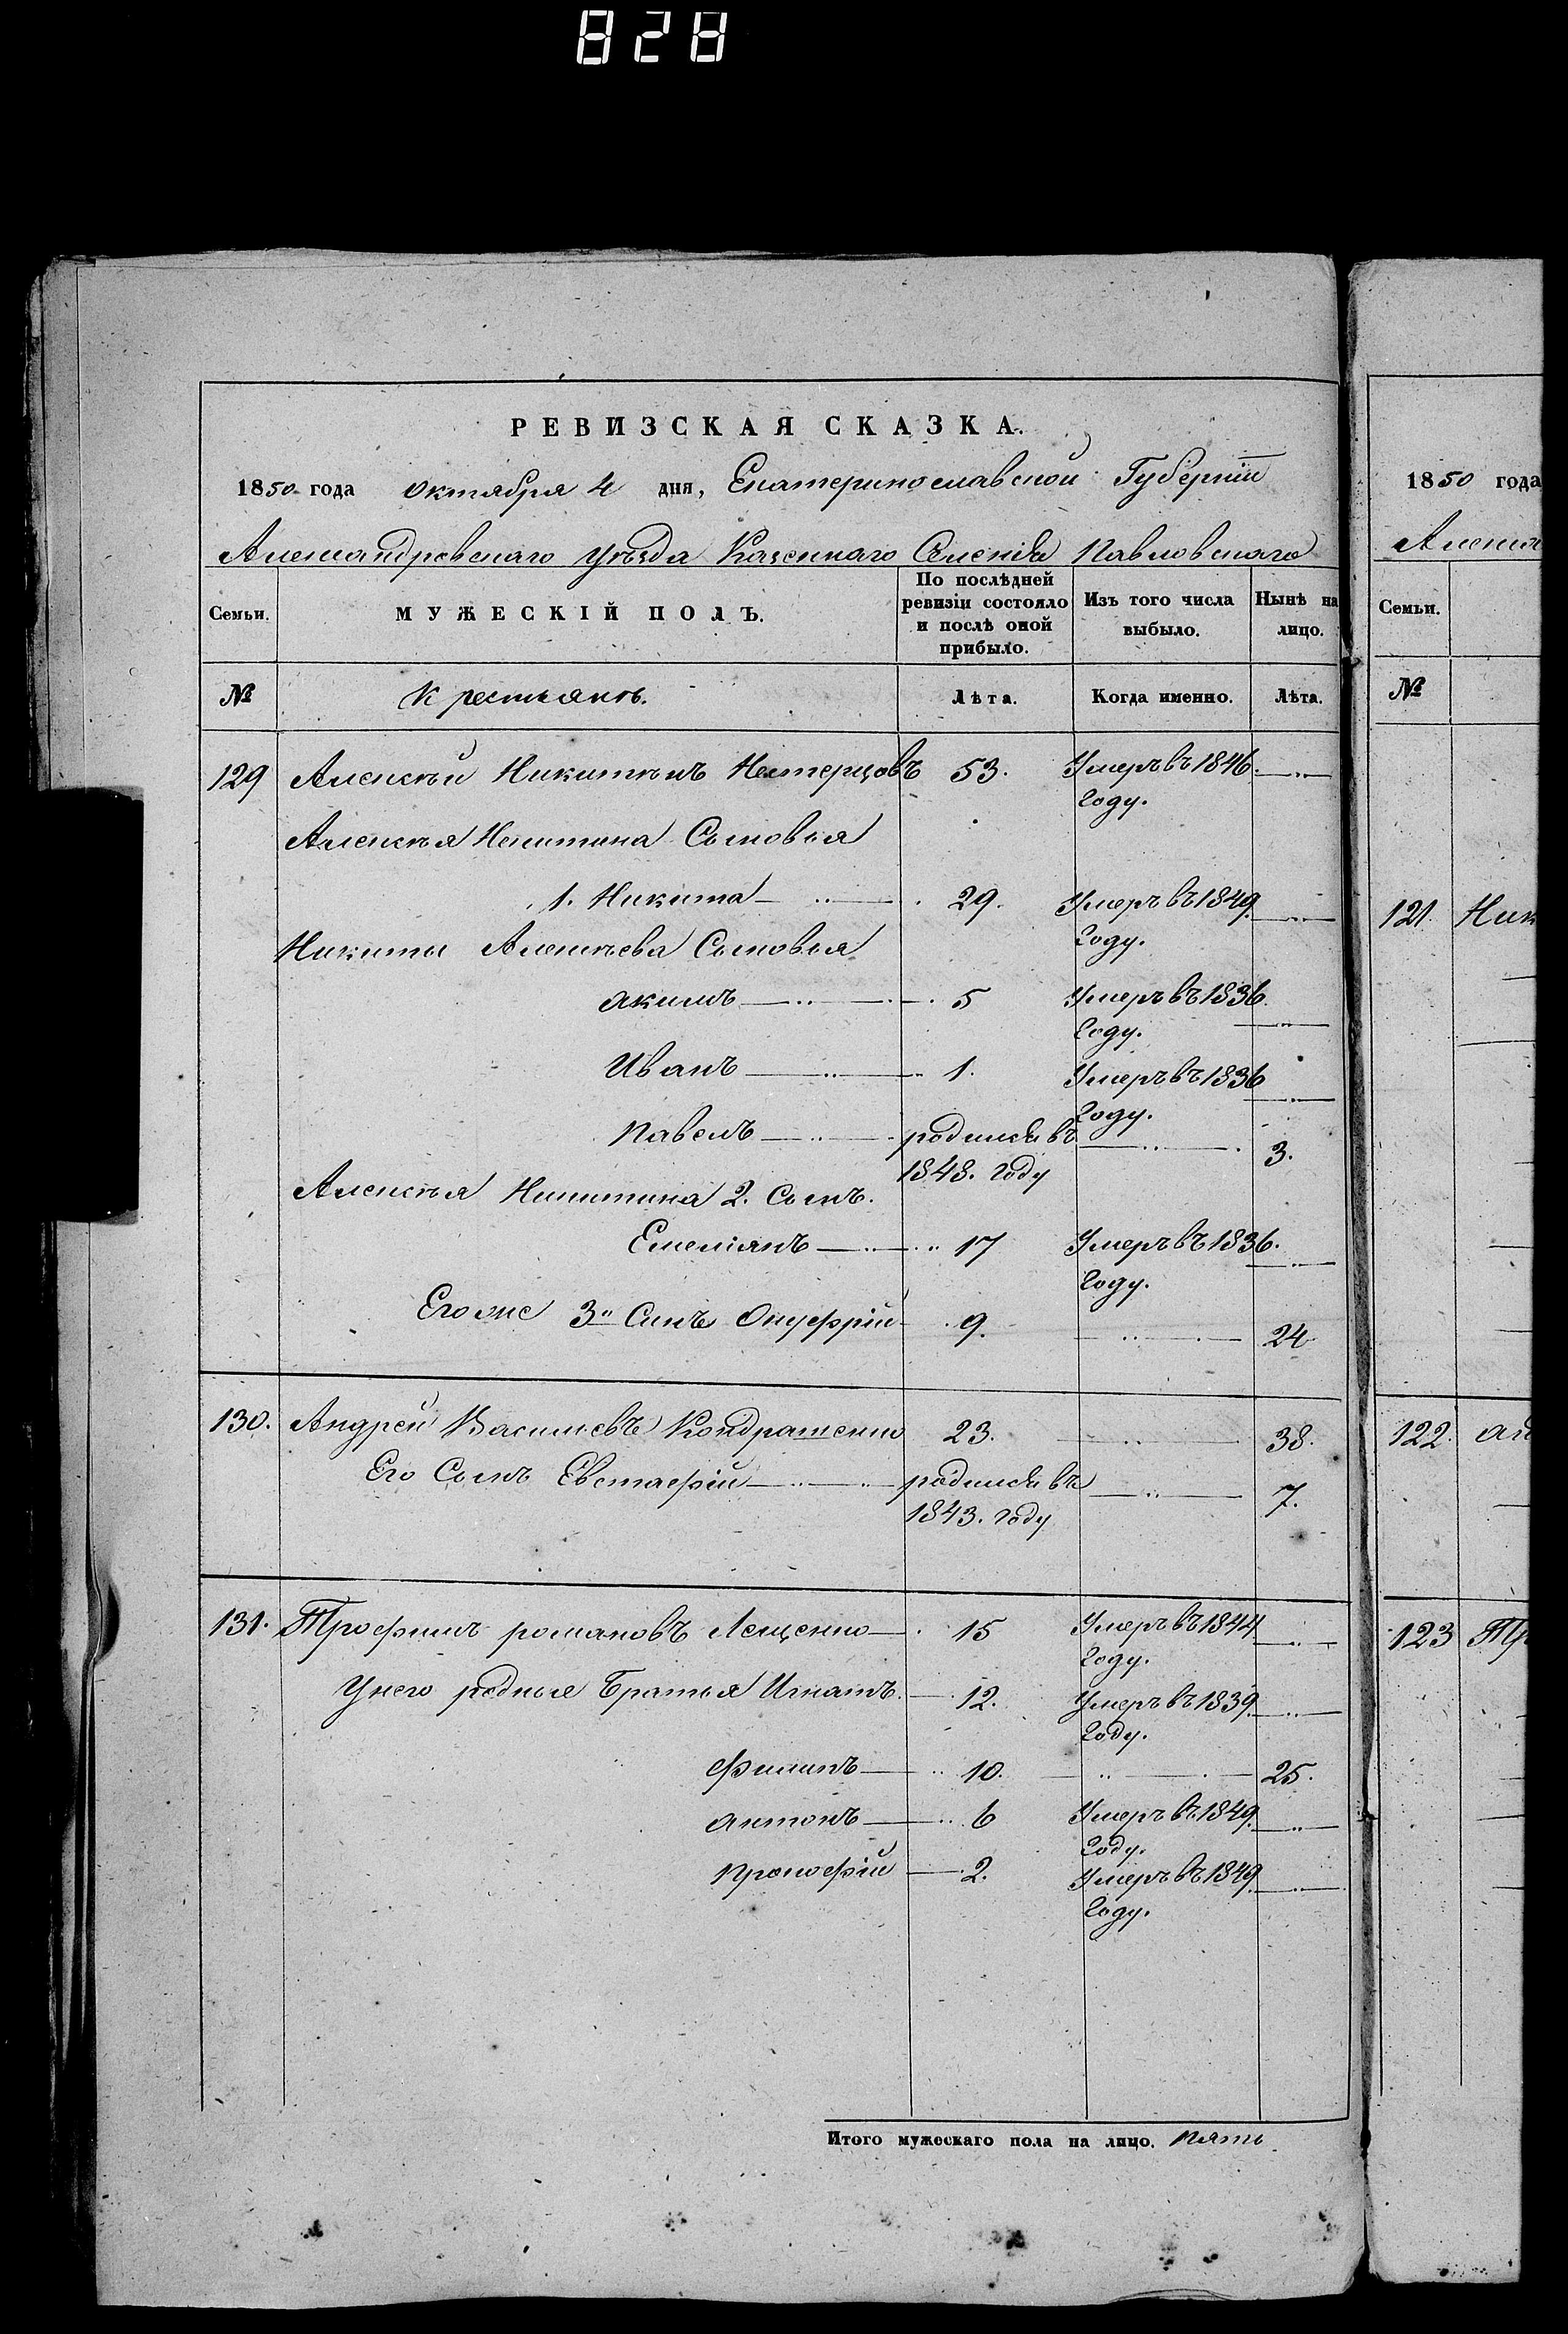 828
РЕВИЗСКАЯ СКАЗКА.
1850 года октября 4 дня, Екатеринославской Губерніи
Александровскаго уѣзда Казеннаго Селенія Павловскаго
Семьи. МУЖЕСКІЙ ПОЛЪ. По послѣдней ревизіи состояло и послѣ оной прибыло. Изъ того числа выбыло. Нынѣ на лицо.
№ Крестьянъ. Лѣта. Когда именно. Лѣта.
129 Алексѣй Никитинъ 53. Умеръ въ 1846.
году.
Алексѣя Никитина Сыновья
1. Никита 29. Умеръ въ 1849.
году.
Никиты Алексѣева Сыновья
Акимъ 5 Умеръ въ 1836.
году.
Иванъ 1. Умеръ въ 1836
году.
Павелъ родился въ 3.
1848. году
Алексѣя Никитина 2. Сынъ.
Емельянъ 17 Умеръ въ 1836.
году.
Его же 3й Сынъ Онуфрій 9. 24
130. Андрей Васильевъ Кондратенко 23. 38.
Его Сынъ Евстафій родился въ 7.
1843. году
131. Трофимъ романовъ Лещенко 15 Умеръ въ 1844
году.
У него родные Братья Игнатъ. 12. Умеръ въ 1839.
году.
Филипъ 10. 25.
антонъ 6 Умеръ въ 1849.
году.
Прокофій 2. Умеръ въ 1849.
году.
Итого мужескаго пола на лицо. пять
1850 года
Семьи.
№
121. Ник
122.
123 Тр